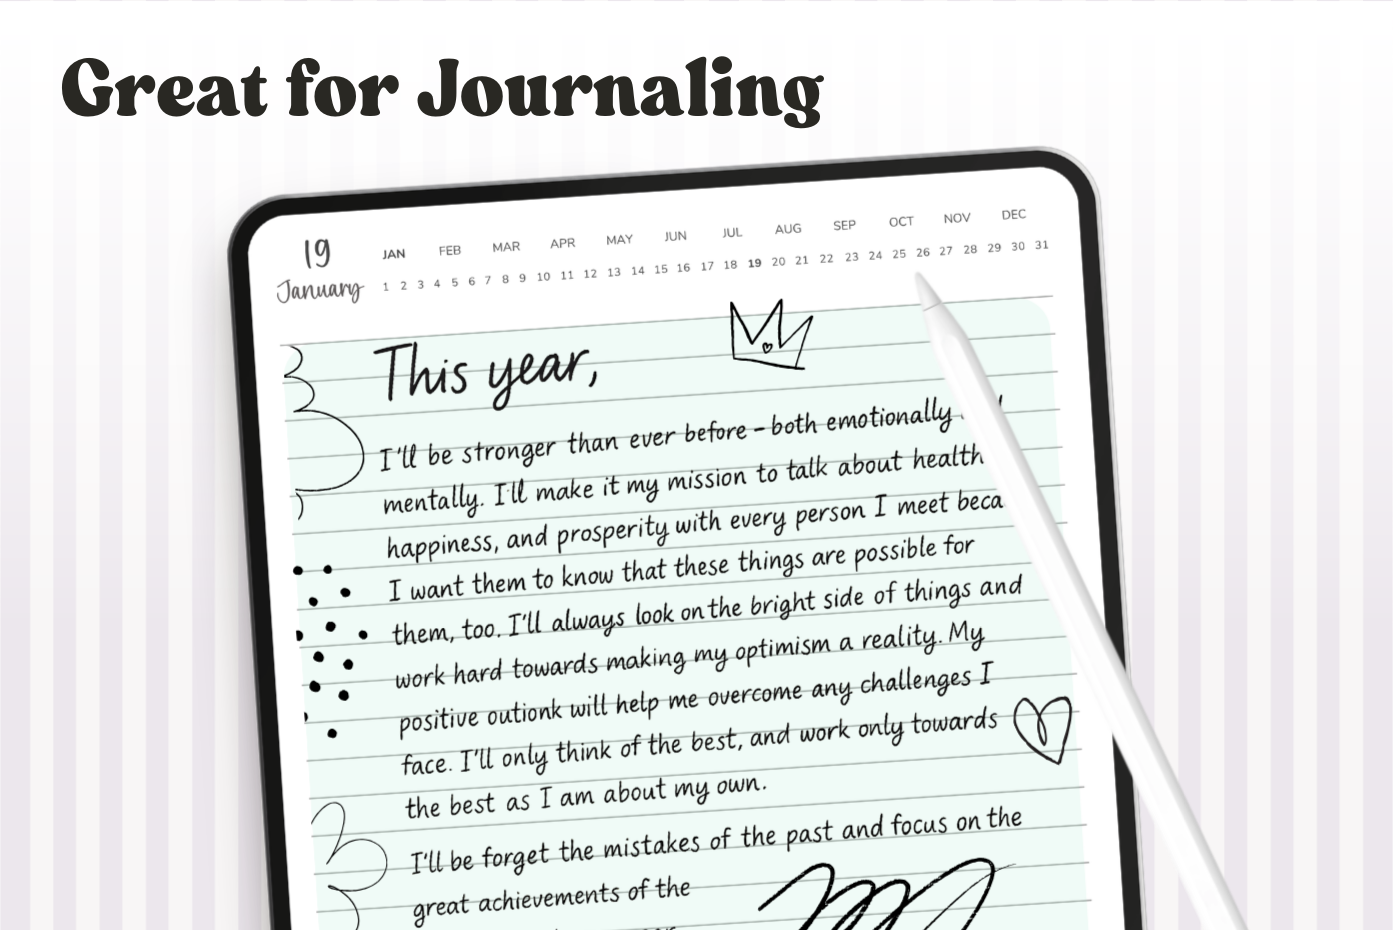 Great for Journaling
19
January
JAN FEB MAR APR MAY JUN JUL AUG SEP OCT NOV DEC
1 2 3 4 5 6 7 8 9 10 11 12 13 14 15 16 17 18 19 20 21 22 23 24 25 26 27 28 29 30 31
This year,
I'll be stronger than ever before - both emotionally
mentally. I'll make it my mission to talk about health
happiness, and prosperity with every person I meet beca
I want them to know that these things are possible for
them, too. I'll always look on the bright side of things and
work hard towards making my optimism a reality. My
positive outionk will help me overcome any challenges I
face. I'll only think of the best, and work only towards
the best as I am about my own.
I'll be forget the mistakes of the past and focus on the
great achievements of the